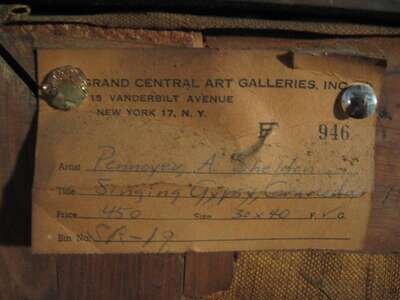 GRAND CENTRAL ART GALLERIES, INC.
15 VANDERBILT AVENUE
NEW YORK 17, N. Y.
F 946
Artist Pennoyer, A Sheldon
Title Singing Gypsy, Granada
Price 450 Size 30 x 40 F. V. G.
Bin No. SR-19